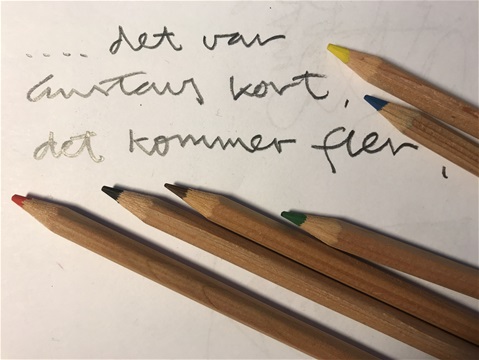 .... det var
Gustavs kort,
det kommer fler,